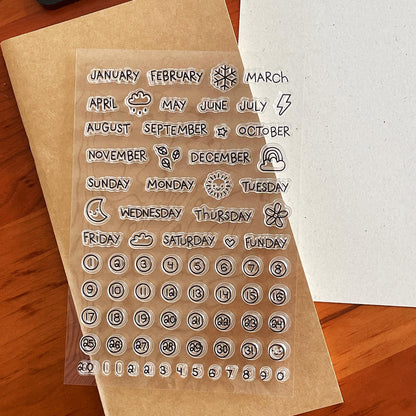 JANUARY FEBRUARY MARCH
APRIL MAY JUNE JULY
AUGUST SEPTEMBER OCTOBER
NOVEMBER DECEMBER
SUNDAY MONDAY TUESDAY
WEDNESDAY THURSDAY
FRIDAY SATURDAY FUNDAY
1 2 3 4 5 6 7 8
9 10 11 12 13 14 15 16
17 18 19 20 21 22 23 24
25 26 27 28 29 30 31
20 1 1 2 2 3 4 5 6 7 8 9 0